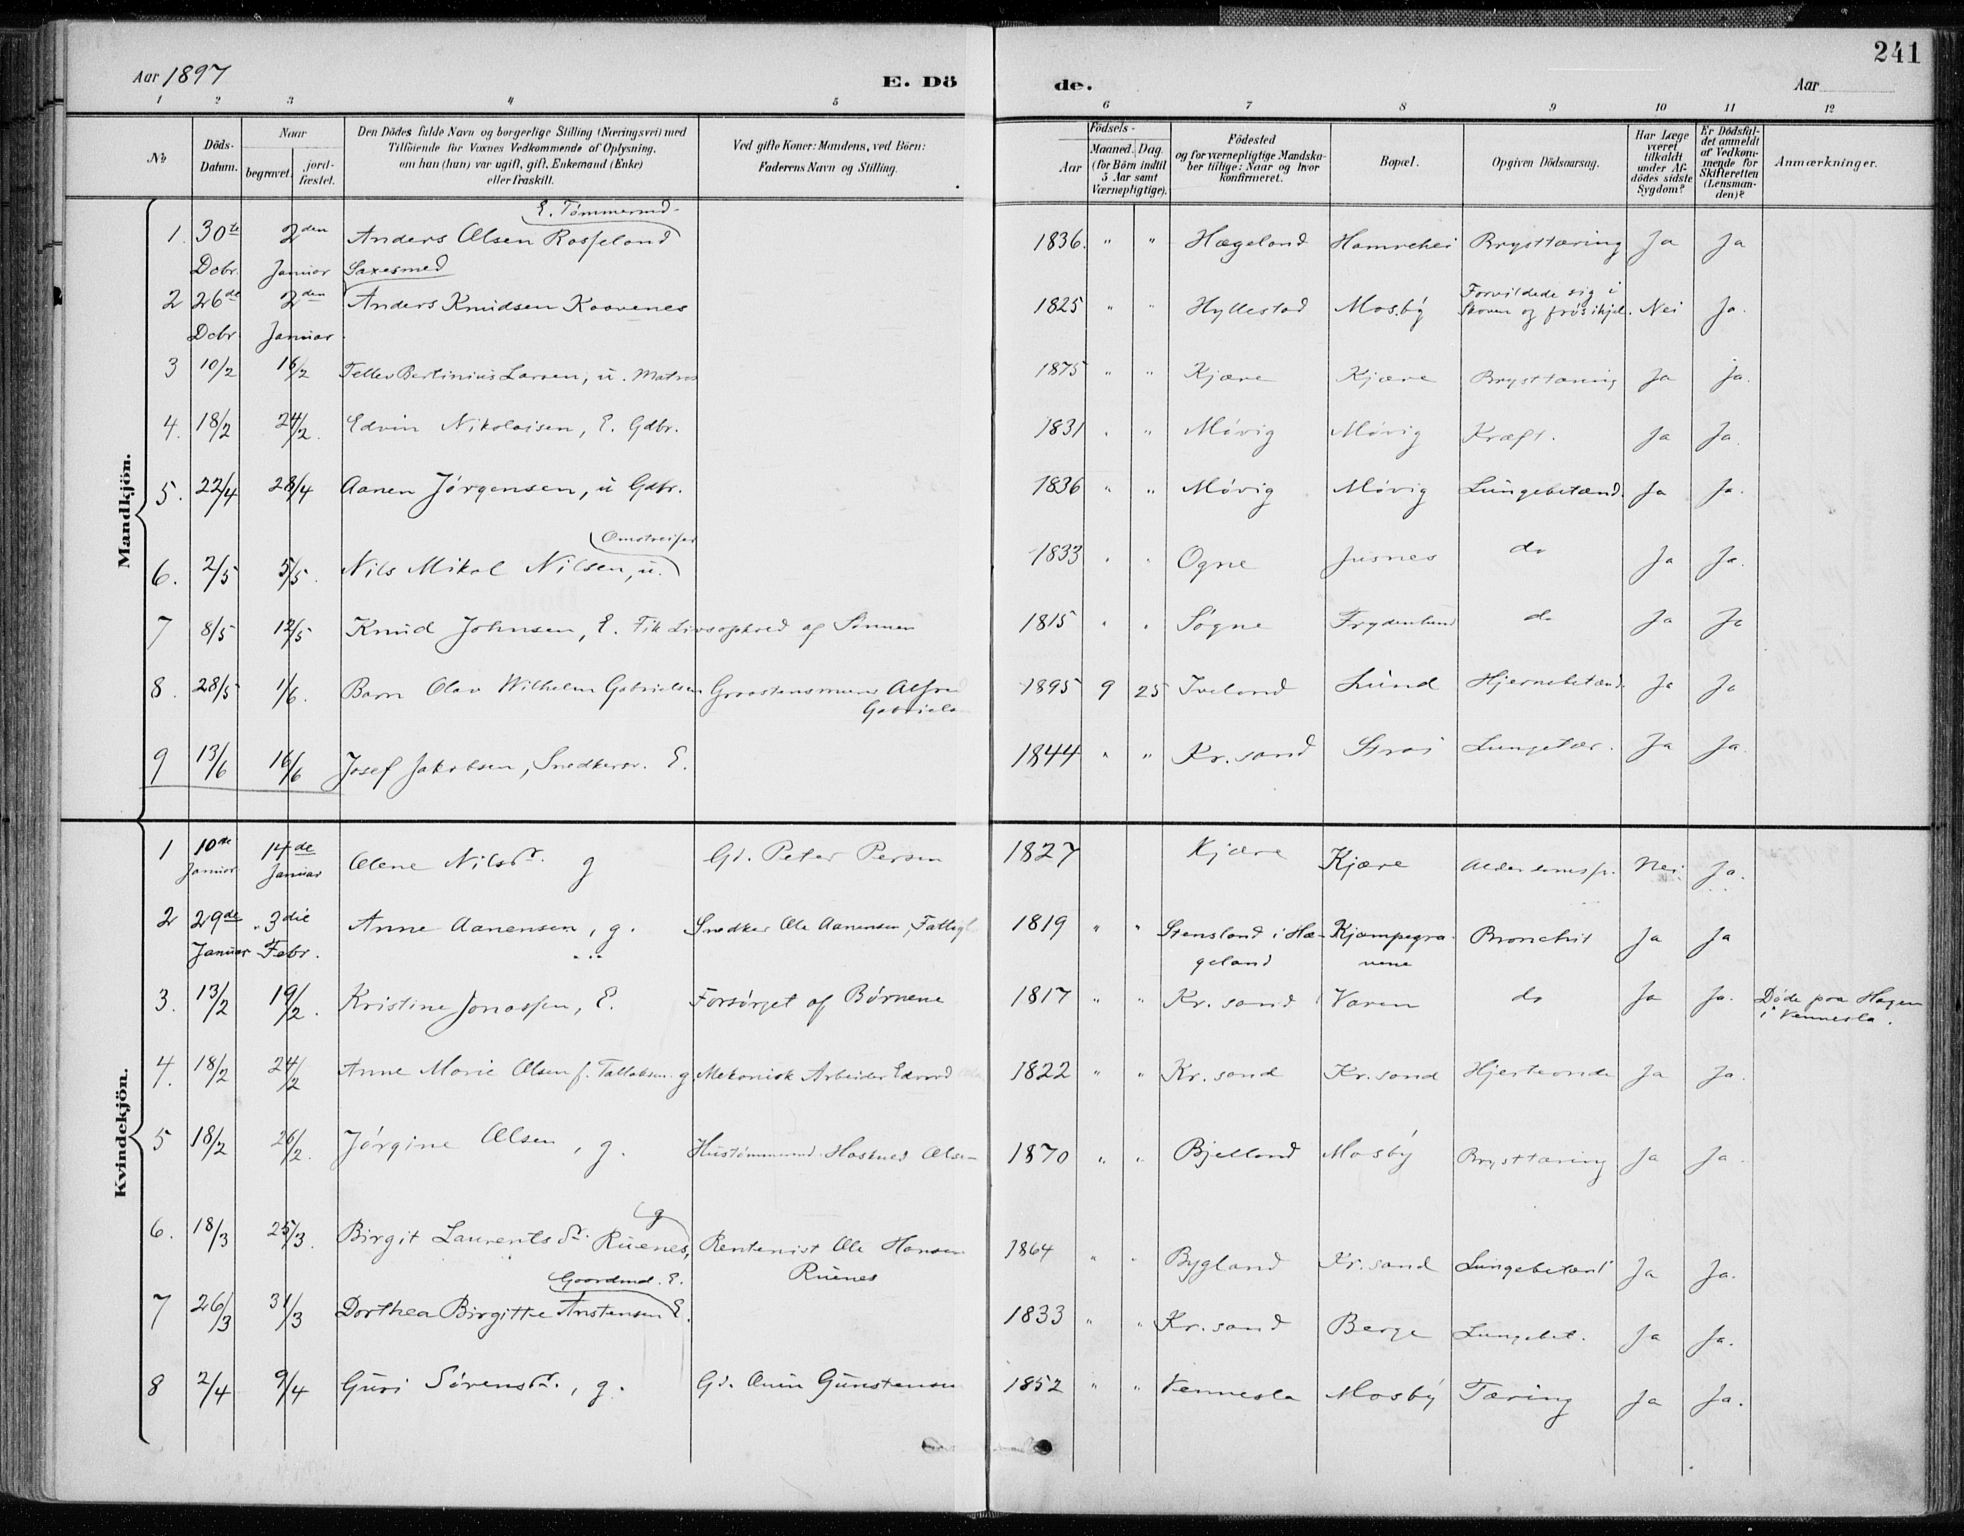 241
Aar 1897 E. Dö de. Aar
1 2 3 4 5 6 7 8 9 10 11 12
No
Döds-Datum.
Naar
begravet.
jord-fæstet.
Den Dödes fulde Navn og borgerlige Stilling (Næringsvei) med
Tilföiende for Voxnes Vedkommende af Oplysning,
om han (hun) var ugift, gift, Enkemand (Enke)
eller fraskilt.
Ved gifte Koner: Mandens, ved Börn:
Faderens Navn og Stilling.
Födsels-
Aar
Maaned. Dag.
(for Börn indtil
5 Aar samt
Værnepligtige).
Födested
og for værnepligtige Mandska-
ber tillige: Naar og hvor
konfirmeret.
Bopæl.
Opgiven Dödsaarsag.
Har Læge
været
tilkaldt
under Af-
dödes sidste
Sygdom?
Er Dödsfal-
det anmeldt
af Vedkom-
mende for
Skifteretten
(Lensman-
den)?
Anmærkninger.
Mandkjön.
E. Tømmermd.
1. 30te Dcbr. 2den Januar Anders Olsen Rosseland 1836. " " Hægeland Homrehei Brysttæring Ja Ja
Saxesmed
2 26de Dcbr 2den Januar. Anders Knudsen Kaavenes 1825 " " Hyllestad Mosby Forvildede sig i Skoven og frøs ihjel. Nei Ja.
3 10/2 16/2 Tellev Bertinius Larsen, u. Matros 1875 " " Kjære Kjære Brysttæring Ja Ja.
4. 18/2 24/2. Edvin Nikolaisen, E. Gdbr. 1831 " " Møvig Møvig Kræft. Ja Ja.
5. 22/4 28/4 Aanen Jørgensen, u Gdbr. 1836 " " Møvig Møvig Lungebetænd. Ja Ja.
Omstreifer
6. 2/5 5/5. Nils Mikal Nilsen, u. 1833 " " Ogne Jusnes do Ja Ja.
7 8/5 12/5 Knud Johnsen, E. Fik Livsophold af Sønnen 1815 " " Søgne Frydenlund do Ja Ja
8. 28/5 1/6. Barn Olav Wilhelm Gabrielsen Graastensmurer Alfred 1895 9 25 Iveland Lund Hjernebetænd. Ja Ja
9 13/6 16/6 Josef Jakobsen, Snedkersv. E. 1844 " " Kr.sand Strai Lungetær. Ja Ja.
Kvindekjön.
1 10de Januar 14de Januar Olene Nilsdr. g Gd. Peter Persen 1827 Kjære Kjære Alderdomssv. Nei Ja.
2 29de Januar 3die Febr. Anne Aanensen, g. Snedker Ole Aanensen, Fattigl 1819 " " Stensland i Hæ-geland Kjæmpegra-vene Bronchit Ja Ja
3. 13/2 19/2. Kristine Jonassen, E. Forsørget af Børnene 1817 " " Kr.sand Varen do Ja Ja. Døde paa Hagen
i Vennesla.
4. 18/2 24/2 Anne Marie Olsen f. Tallaksen g Mekanisk Arbeider Edvard 1822 " " Kr.sand Kr.sand Hjerteonde Ja Ja.
5 18/2 26/2. Jørgine Olsen, g. Hustømmermd. Olsen 1870 " " Bjelland Mosby Brysttæring Ja Ja.
g
6. 18/3 25/3. Birgit Laurentsdr. Ruenes, Rentenist Ole Hansen Ruenes 1864 " " Bygland Kr.sand Lungebetænd Ja Ja.
Gaardmd. E.
7 26/3 31/3 Dorthea Birgitte Anstensen E. 1833 " " Kr.sand Berge Lungebet. Ja Ja.
8 2/4 9/4 Guri Sørensdr., g. Gd. Gunstensen 1852 " " Vennesla Mosby Tæring Ja Ja.